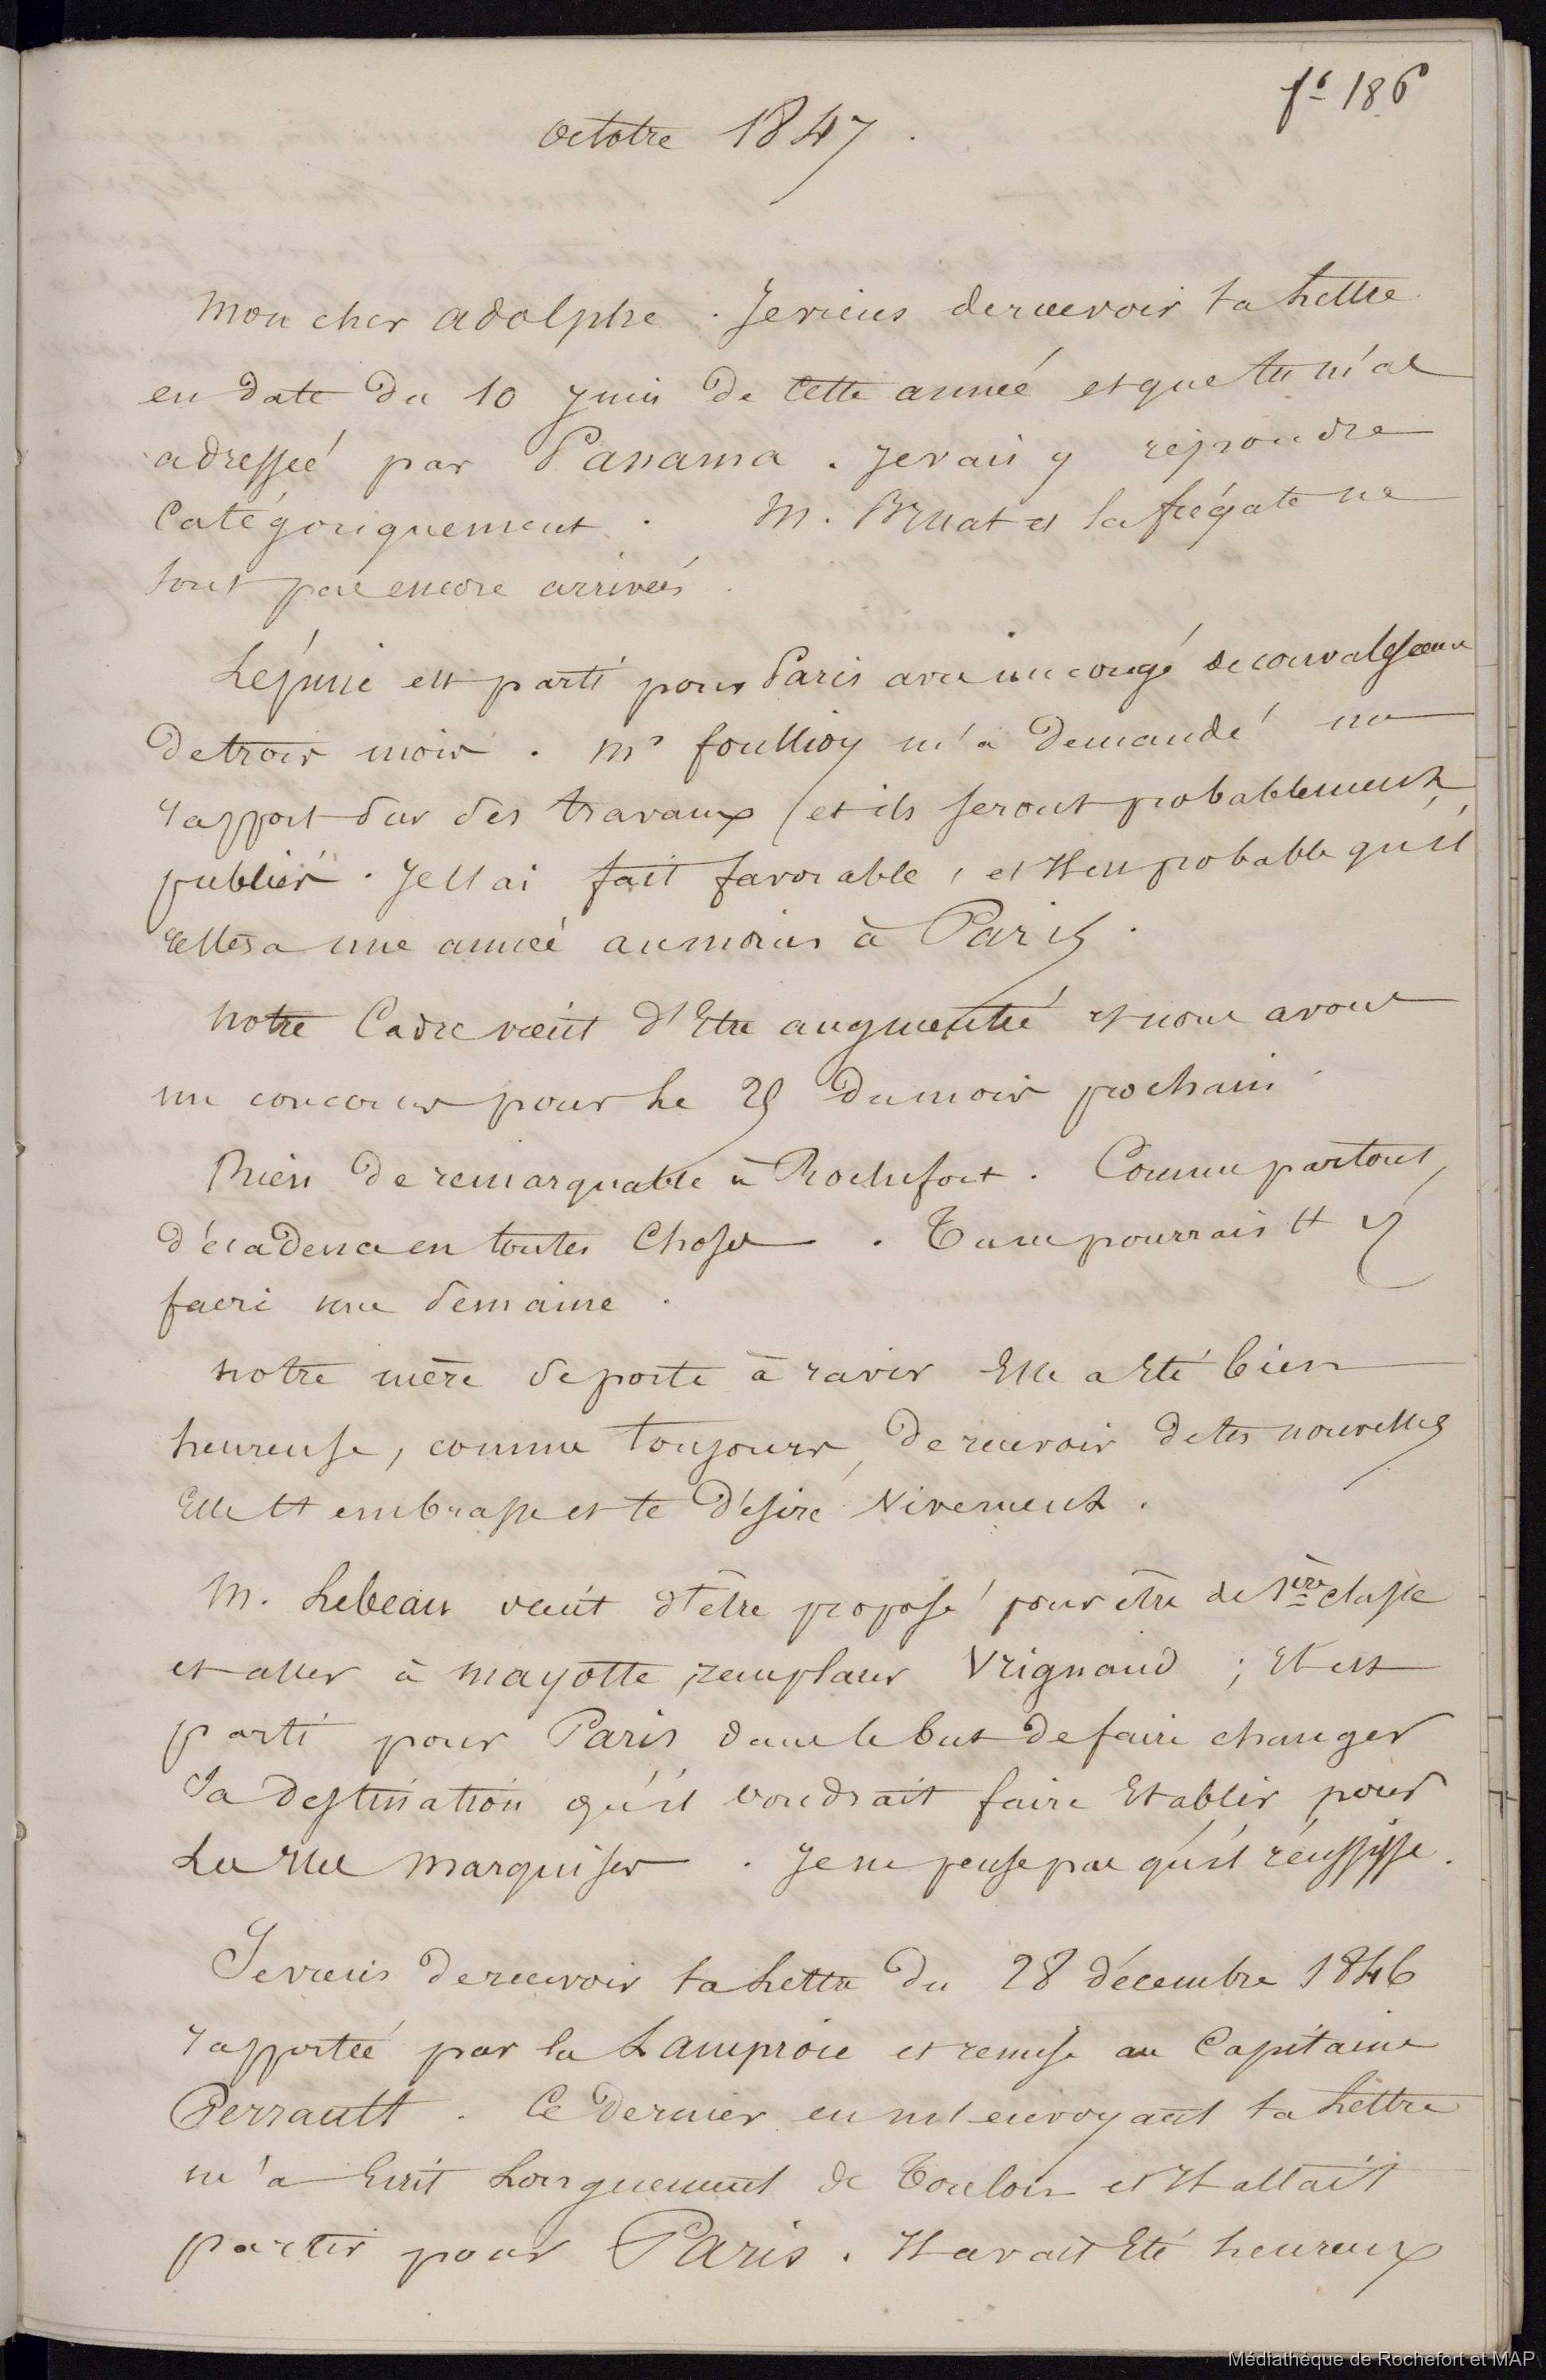 fo 186
octobre 1847.
Mon cher adolphe. Je viens de recevoir ta Lettre
en date du 10 juin de cette année et que tu m'as
adressée par Panama. Je vais y répondre
Catégoriquement. M. Bruat et la frégate ne
sont pas encore arrivés.
est parti pour Paris avec un congé de convalescence
de trois mois. Mr foullioy m'a demandé un
rapport sur ses travaux (et ils seront probablement
publiés. Je l'ai fait favorable, et il est probable qu'il
restera une année au moins à Paris.
notre Cadre vient d'Etre augmenté et nous avons
un concours pour Le 25 du mois prochain
Rien de remarquable à Rochefort. Comme partout,
décadence en toutes Choses. Tu ne pourrais t'y
faire une semaine.
notre mère se porte à ravir Elle a Eté bien
heureuse, comme toujours, de recevoir de tes nouvelles
Elle t'embrasse et te désire Vivement.
M. Lebeau vient d'être proposé pour être de 1ère classe
et aller à mayotte, remplacer Vrignaud; Il est
parti pour Paris dans le but de faire changer
sa destination qu'il voudrait faire Etablir pour
Les Iles marquises. Je ne pense pas qu'il réussisse.
Je viens de recevoir ta Lettre du 28 décembre 1846
rapportée par la Lamproie et remise au Capitaine
Perrault. Ce dernier en m'envoyant ta Lettre
m'a Ecrit Longuement de Toulon et Il allait
partir pour Paris. Il avait Eté heureux
Médiathèque de Rochefort et MAP